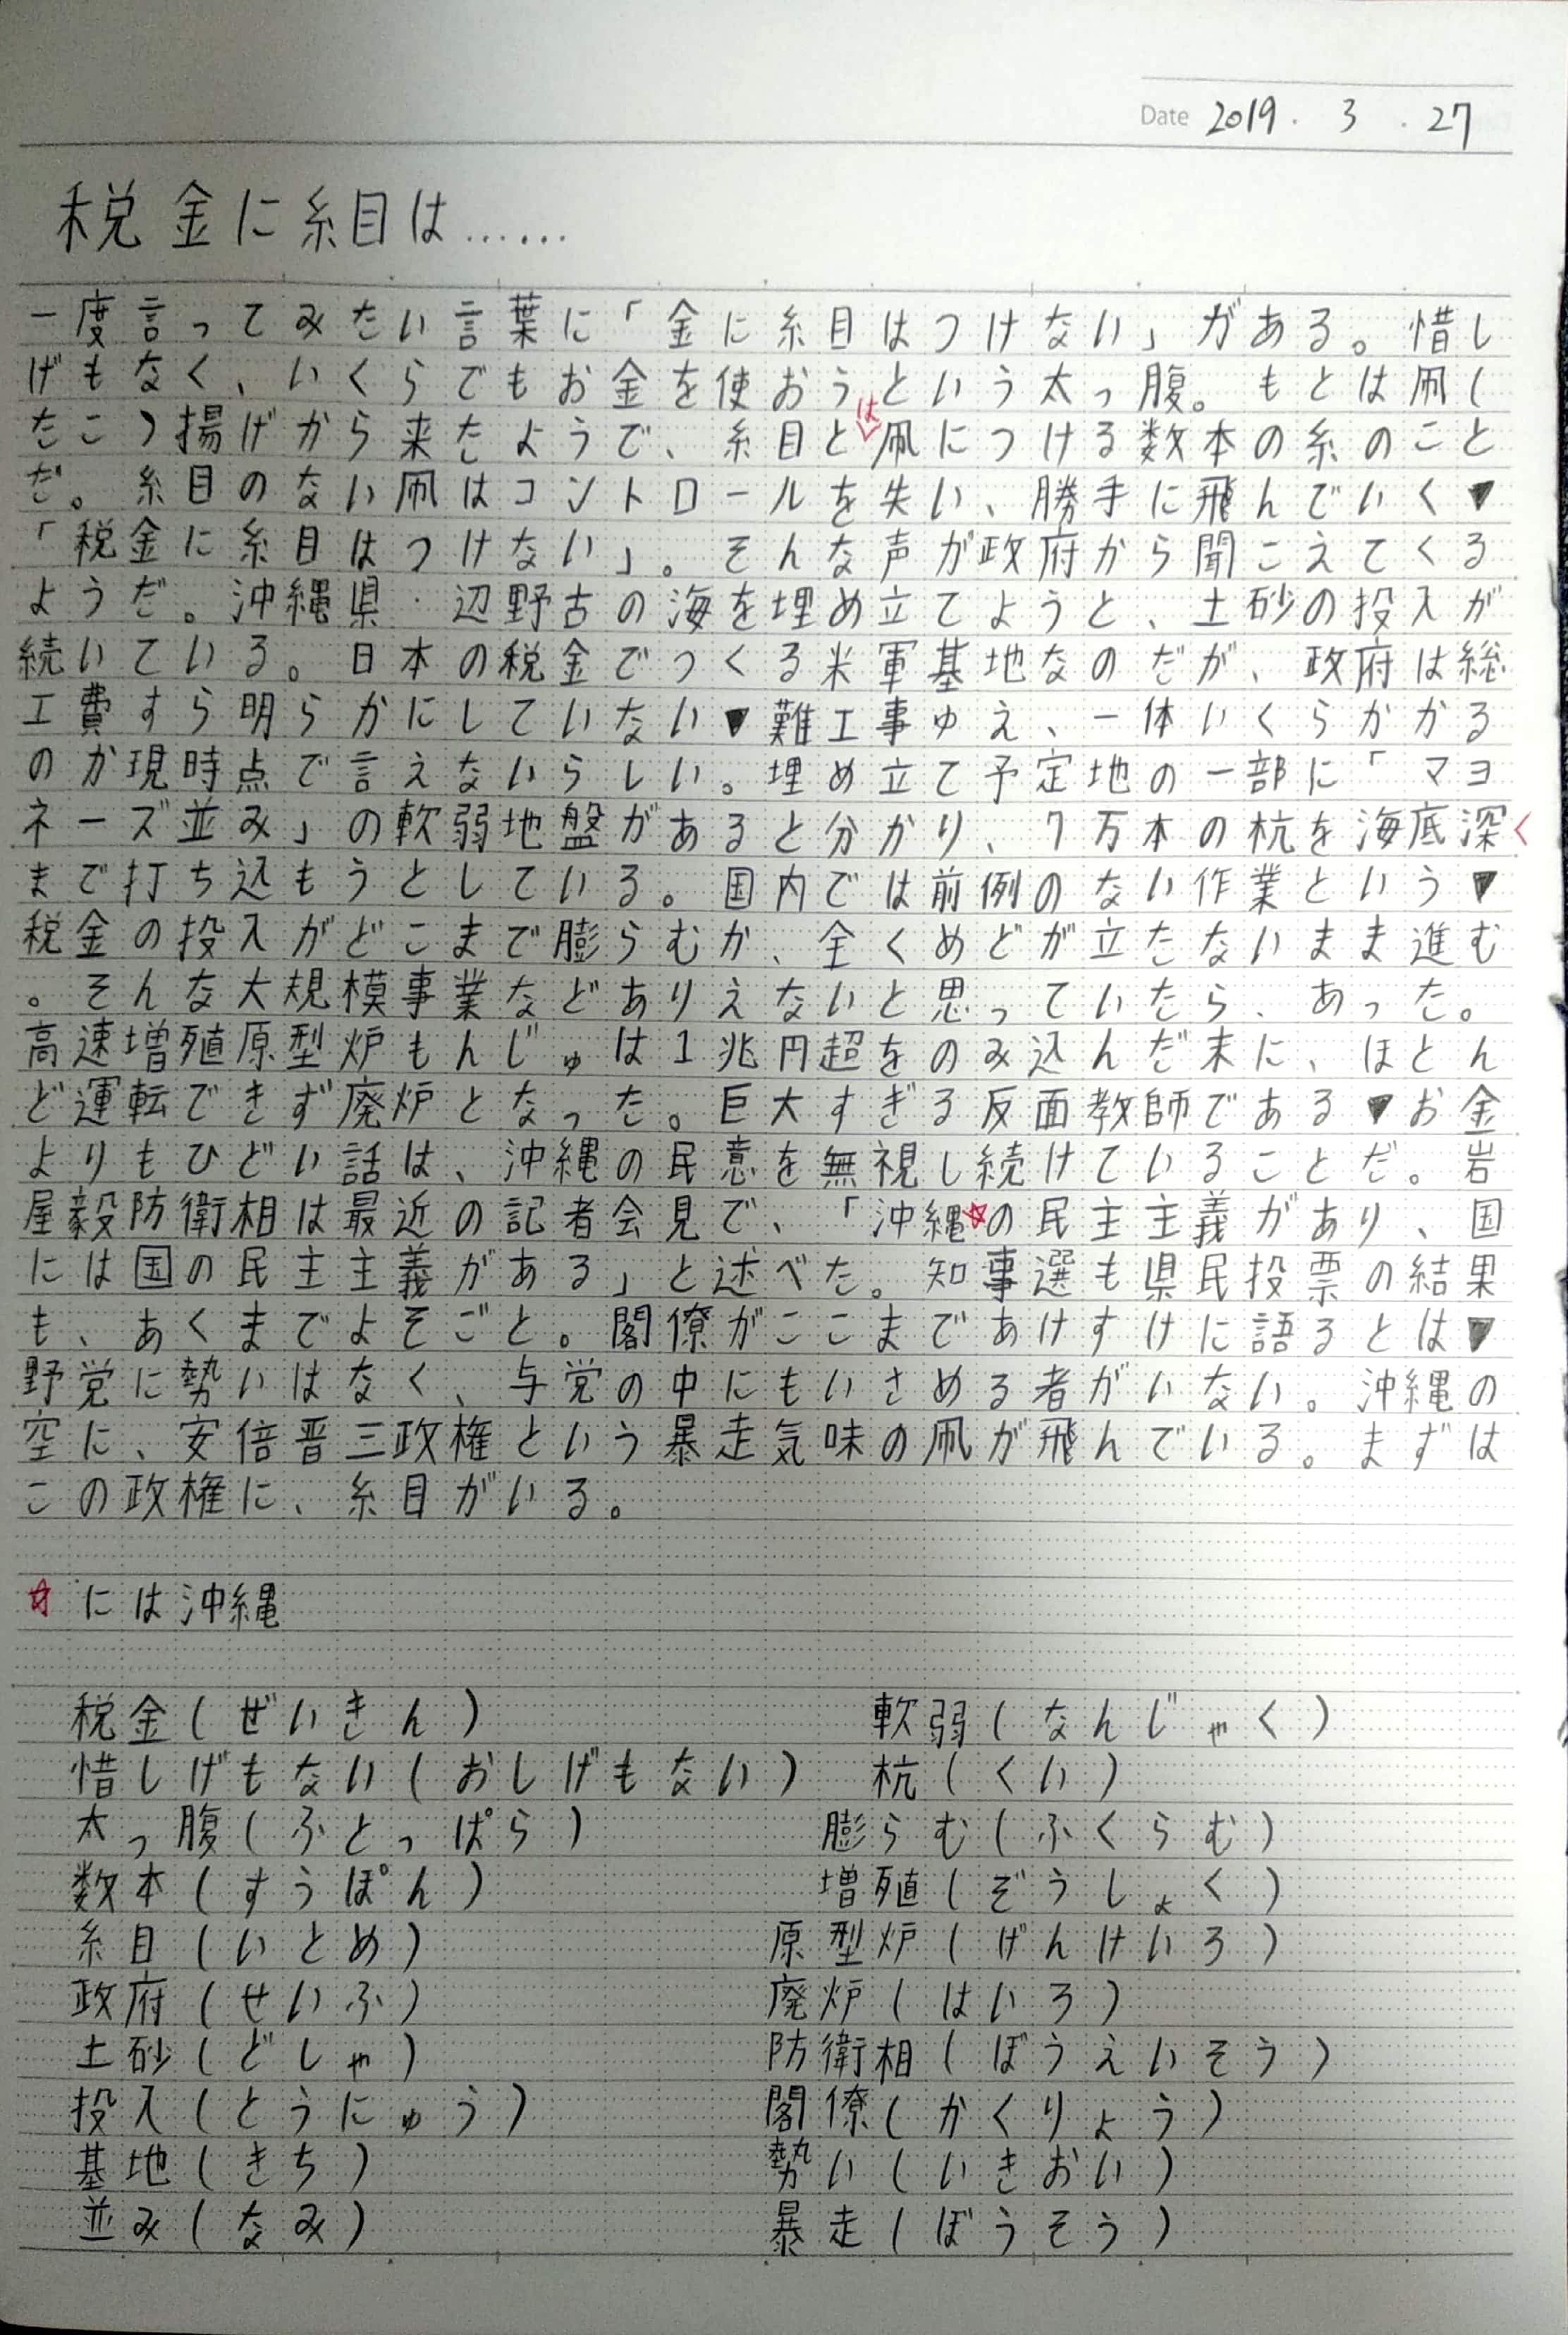 Date 2019. 3. 27
税金に糸目は……
一度言ってみたい言葉に「金に糸目はつけない」がある。惜し
げもなく、いくらでもお金を使おうという太っ腹。もとは凧(
たこ)揚げから来たようで、糸目とは凧につける数本の糸のこと
だ。糸目のない凧はコントロールを失い、勝手に飛んでいく▼
「税金に糸目はつけない」。そんな声が政府から聞こえてくる
ようだ。沖縄県・辺野古の海を埋め立てようと、土砂の投入が
続いている。日本の税金でつくる米軍基地なのだが、政府は総
工費すら明らかにしていない▼難工事ゆえ、一体いくらかかる
のか現時点で言えないらしい。埋め立て予定地の一部に「マヨ
ネーズ並み」の軟弱地盤があると分かり、7万本の杭を海底深く
まで打ち込もうとしている。国内では前例のない作業という▼
税金の投入がどこまで膨らむか、全くめどが立たないまま進む
。そんな大規模事業などありえないと思っていたら、あった。
高速増殖原型炉もんじゅは1兆円超をのみ込んだ末に、ほとん
ど運転できず廃炉となった。巨大すぎる反面教師である▼お金
よりもひどい話は、沖縄の民意を無視し続けていることだ。岩
屋毅防衛相は最近の記者会見で、「沖縄☆の民主主義があり、国
には国の民主主義がある」と述べた。知事選も県民投票の結果
も、あくまでよそごと。閣僚がここまであけすけに語るとは▼
野党に勢いはなく、与党の中にもいさめる者がいない。沖縄の
空に、安倍晋三政権という暴走気味の凧が飛んでいる。まずは
この政権に、糸目がいる。
☆には沖縄
税金(ぜいきん) 軟弱(なんじゃく)
惜しげもない(おしげもない) 杭(くい)
太っ腹(ふとっぱら) 膨らむ(ふくらむ)
数本(すうぽん) 増殖(ぞうしょく)
糸目(いとめ) 原型炉(げんけいろ)
政府(せいふ) 廃炉(はいろ)
土砂(どしゃ) 防衛相(ぼうえいそう)
投入(とうにゅう) 閣僚(かくりょう)
基地(きち) 勢い(いきおい)
並み(なみ) 暴走(ぼうそう)